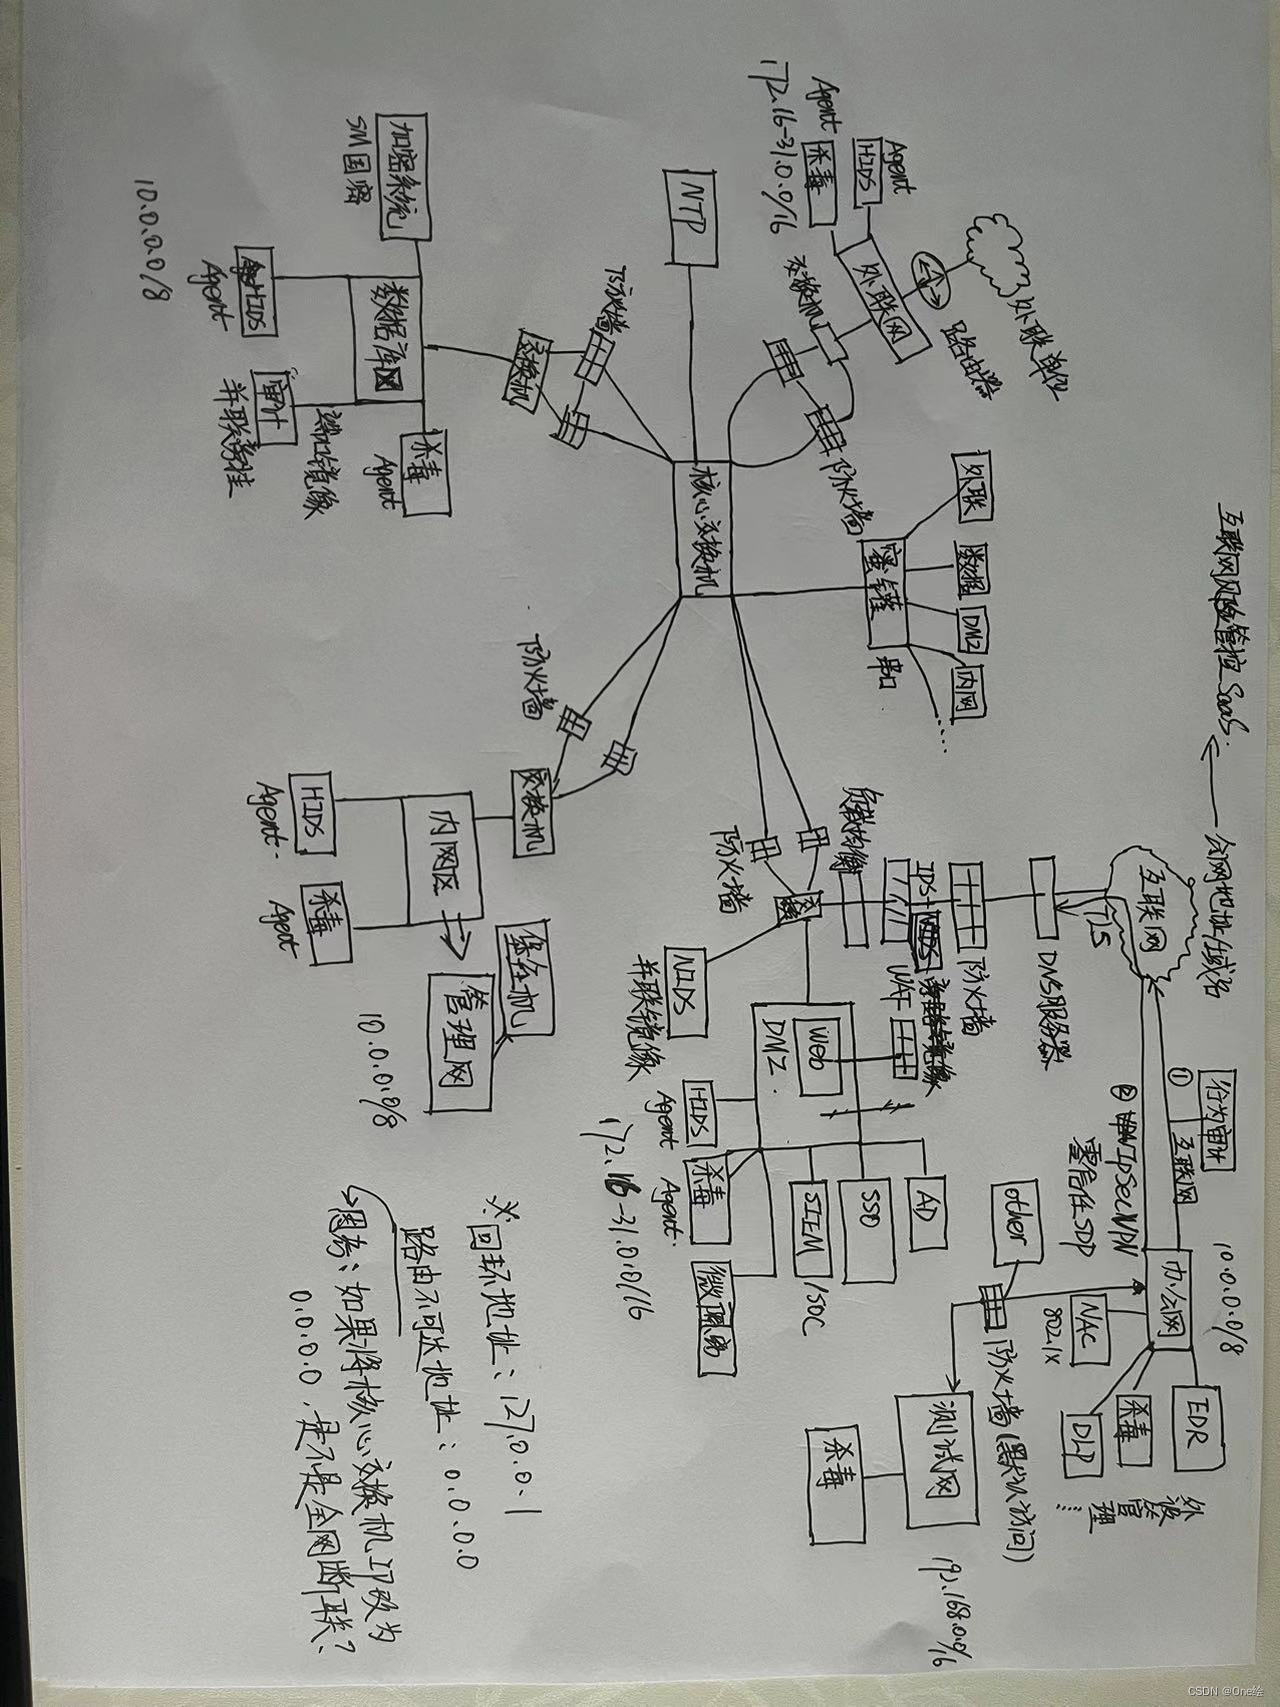 互联网风险管控SaaS.
公网地址/域名
外联单位
路由器
外联网
HIDS
Agent
杀毒
Agent
172.16-31.0.0/16
交换机
防火墙
NTP
核心交换机
加密系统
SM国密
数据库网
HIDS
Agent
审计
端口镜像
杀毒
Agent
10.0.0.0/8
交换机
防火墙
蜜罐
串口
外联
数据
DMZ
内网
....
防火墙
交换机
内网区
HIDS
Agent.
杀毒
Agent
堡垒机
管理网
10.0.0.0/8
互联网
TLS
DNS服务器
防火墙
IPS+
WAF
负载均衡
防火墙
NIDS
并联镜像
DMZ.
Web
HIDS
Agent
杀毒
Agent.
微隔离
SIEM
/SOC
SSO
AD
172.16-31.0.0/16
行为审计
①
互联网
② IPSecVPN
零信任SDP
办公网
10.0.0.0/8
NAC
802.1X
EDR
杀毒
DLP
外设管理
other
防火墙(默认访问)
测试网
杀毒
192.168.0.0/16
※:回环地址:127.0.0.1
路由不可达地址:0.0.0.0
思考:如果将核心交换机IP改为
0.0.0.0,是不是全网断联?
CSDN @One绘